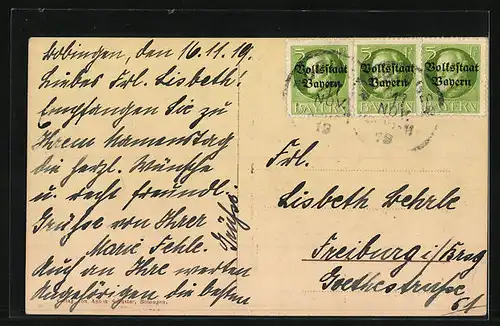 Bobingen, den 16.11.19.
Liebes Frl. Lisbeth!
Empfangen Sie zu
Ihrem Namenstag
die herzl. Wünsche
u. recht freundl.
Grüsse von Ihrer
Marie Fehle.
Auch an Ihre werten
Angehörigen die besten
Grüsse.
5 5 5
Volksstaat Volksstaat Volksstaat
Bayern Bayern Bayern
BAYERN BAYERN BAYERN
NOV.
NOV.
19
Frl.
Lisbeth Behrle
Freiburg i/Brsg
Goethestraße
51